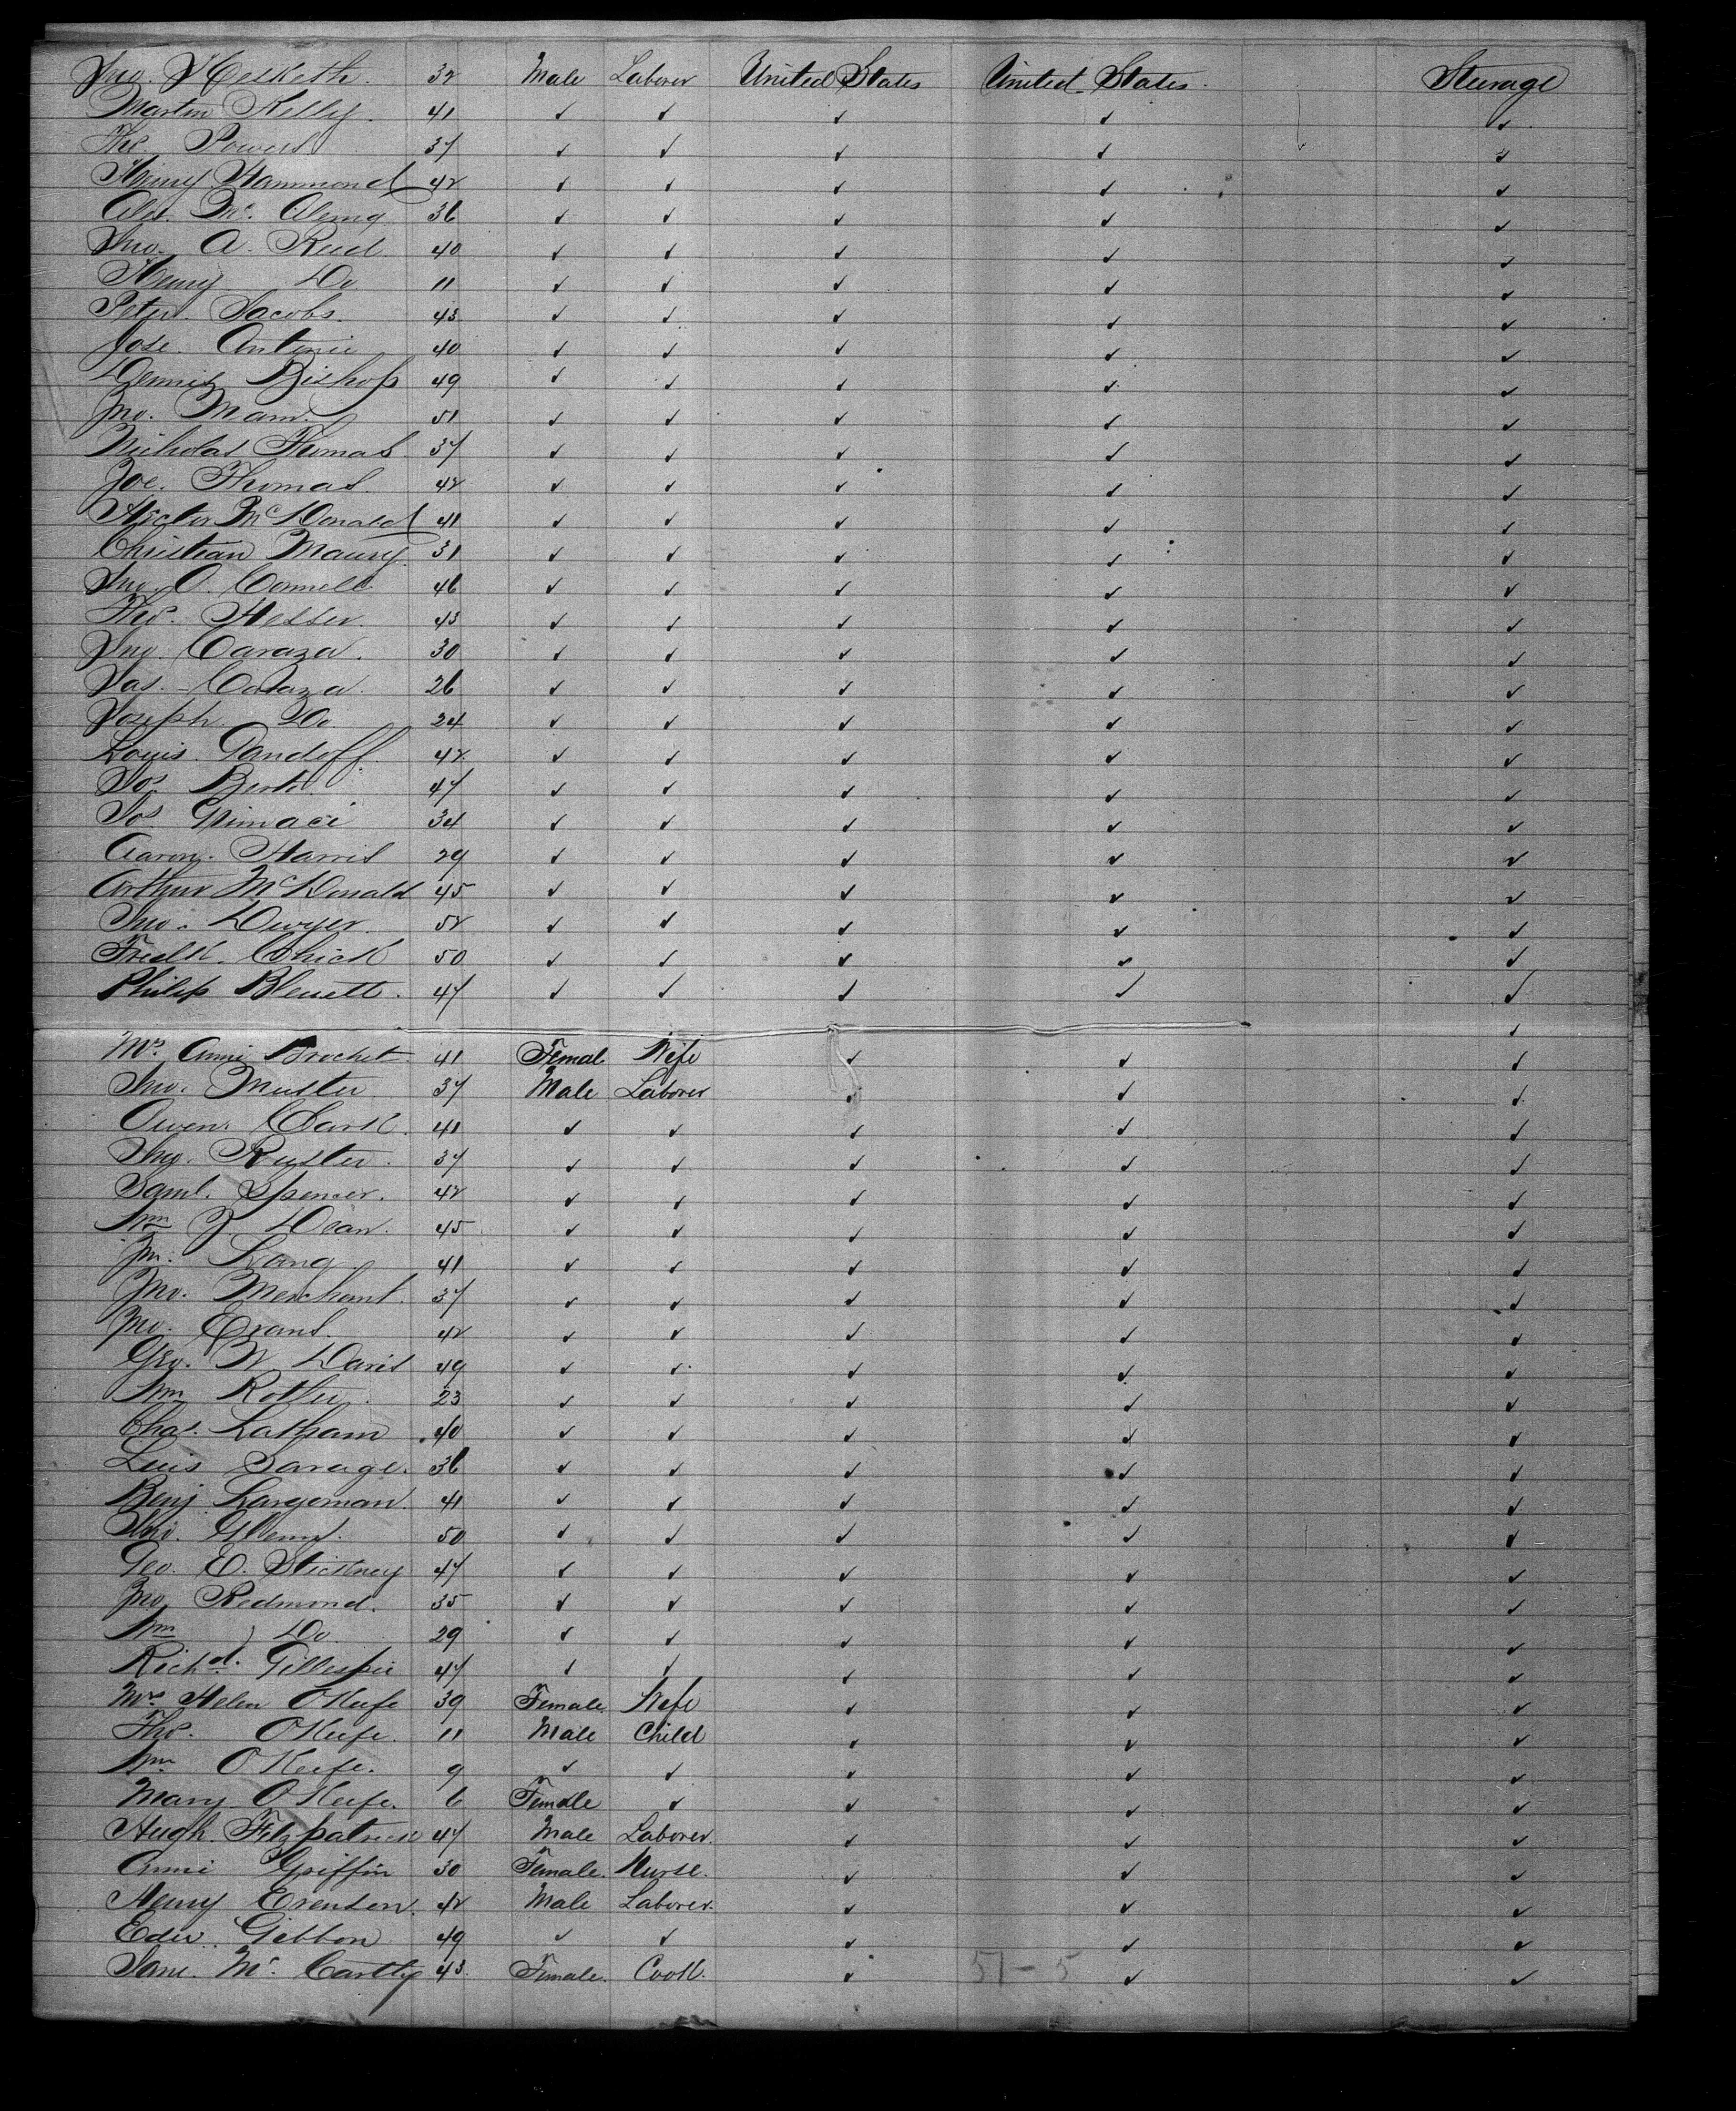 Jno. Hesketh. 32 Male Laborer United States United States. Steerage
Martin Kelly. 41 ✓ ✓ ✓ ✓ ✓
Tho. Powers 37 ✓ ✓ ✓ ✓ ✓
Henry Hammond 42 ✓ ✓ ✓ ✓ ✓
Alex. Mc. 36 ✓ ✓ ✓ ✓ ✓
Jno. A. Reed 40 ✓ ✓ ✓ ✓ ✓
Henry Do. 11 ✓ ✓ ✓ ✓ ✓
Peter Jacobs. 43 ✓ ✓ ✓ ✓ ✓
Jose. Antonie 40 ✓ ✓ ✓ ✓ ✓
Dennis Bishop 49 ✓ ✓ ✓ ✓ ✓
Jno. Mann. 51 ✓ ✓ ✓ ✓ ✓
Nicholas Thomas 37 ✓ ✓ ✓ ✓ ✓
Joe. Thomas. 42 ✓ ✓ ✓ ✓ ✓
Hector McDonald 41 ✓ ✓ ✓ ✓ ✓
Christian Maury. 31 ✓ ✓ ✓ ✓ ✓
Jno. O. Connell. 46 ✓ ✓ ✓ ✓ ✓
Thos. Hesser. 43 ✓ ✓ ✓ ✓ ✓
Jno. Caraza. 30 ✓ ✓ ✓ ✓ ✓
Jas. Caraza. 26 ✓ ✓ ✓ ✓ ✓
Joseph Do. 24 ✓ ✓ ✓ ✓ ✓
Louis. Gandoff 42 ✓ ✓ ✓ ✓ ✓
Jos. 47 ✓ ✓ ✓ ✓ ✓
Jos. 34 ✓ ✓ ✓ ✓ ✓
Aaron. Harris 29 ✓ ✓ ✓ ✓ ✓
Arthur McDonald 45 ✓ ✓ ✓ ✓ ✓
Jno. Dwyer. 52 ✓ ✓ ✓ ✓ ✓
Fredk. Chick 50 ✓ ✓ ✓ ✓ ✓
Philip Blewett. 47 ✓ ✓ ✓ ✓ ✓
Mrs. Annie Brochet 41 Femal Wife ✓ ✓ ✓
Jno. Muster 37 Male Laborer ✓ ✓ ✓
Owen. Clark. 41 ✓ ✓ ✓ ✓ ✓
Jno. Ryster. 37 ✓ ✓ ✓ ✓ ✓
Saml. Spencer. 42 ✓ ✓ ✓ ✓ ✓
Wm Z. Dean. 45 ✓ ✓ ✓ ✓ ✓
Lang 41 ✓ ✓ ✓ ✓ ✓
Jno. Merchant. 37 ✓ ✓ ✓ ✓ ✓
Jno. Evans. 42 ✓ ✓ ✓ ✓ ✓
Geo. W Davis 49 ✓ ✓ ✓ ✓ ✓
Wm Rother. 23 ✓ ✓ ✓ ✓ ✓
Chas. Latham 40 ✓ ✓ ✓ ✓ ✓
Luis Savage. 36 ✓ ✓ ✓ ✓ ✓
Benj. Largeman. 41 ✓ ✓ ✓ ✓ ✓
Jno. Glenns. 50 ✓ ✓ ✓ ✓ ✓
Geo. E. Stickney 47 ✓ ✓ ✓ ✓ ✓
Jno. Redmond. 35 ✓ ✓ ✓ ✓ ✓
Wm Do. 29 ✓ ✓ ✓ ✓ ✓
Richd. Gillespie 47 ✓ ✓ ✓ ✓ ✓
Mrs Helen O'Keefe 39 Female Wife ✓ ✓ ✓
Thos. O'Keefe. 11 Male Child ✓ ✓ ✓
Wm O'Keefe. 9 ✓ ✓ ✓ ✓ ✓
Mary O'Keefe. 6 Female ✓ ✓ ✓ ✓
Hugh. Fitzpatrick 47 Male Laborer. ✓ ✓ ✓
Annie Griffin 30 Female. Nurse. ✓ ✓ ✓
Henry Erensen. 42 Male Laborer. ✓ ✓ ✓
Edw. Gibbon 49 ✓ ✓ ✓ ✓ ✓
Jane. Mc. Cartty 43. Female. Cook. ✓ 51-5 ✓ ✓